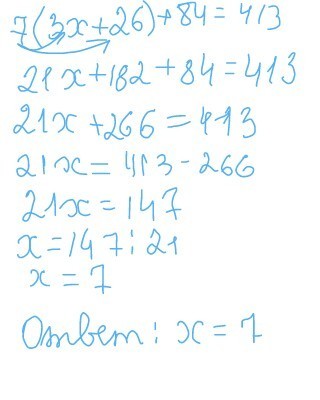 7(3x+26)+84=413
21x+182+84=413
21x+266=413
21x=413-266
21x=147
x=147:21
x=7
Ответ: x=7